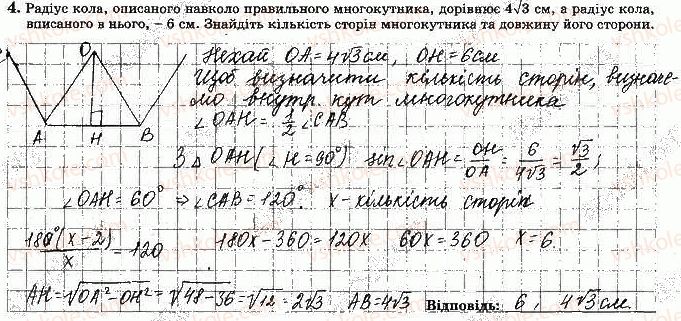 4. Радіус кола, описаного навколо правильного многокутника, дорівнює 4√3 см, а радіус кола,
вписаного в нього, – 6 см. Знайдіть кількість сторін многокутника та довжину його сторони.
O
A H B
Нехай OA = 4√3 см, OH = 6 см
Щоб визначити кількість сторін, визначе-
мо внутр. кут многокутника
∠OAH = 1/2 ∠CAB
З Δ OAH (∠H = 90°) sin∠OAH = OH/OA = 6/4√3 = √3/2;
∠OAH = 60° ⇒ ∠CAB = 120°. x - кількість сторін
180°(x-2)/x = 120 180x - 360 = 120x 60x = 360 x = 6.
AH = √OA² - OH² = √48-36 = √12 = 2√3 AB = 4√3 Відповідь: 6, 4√3 см.